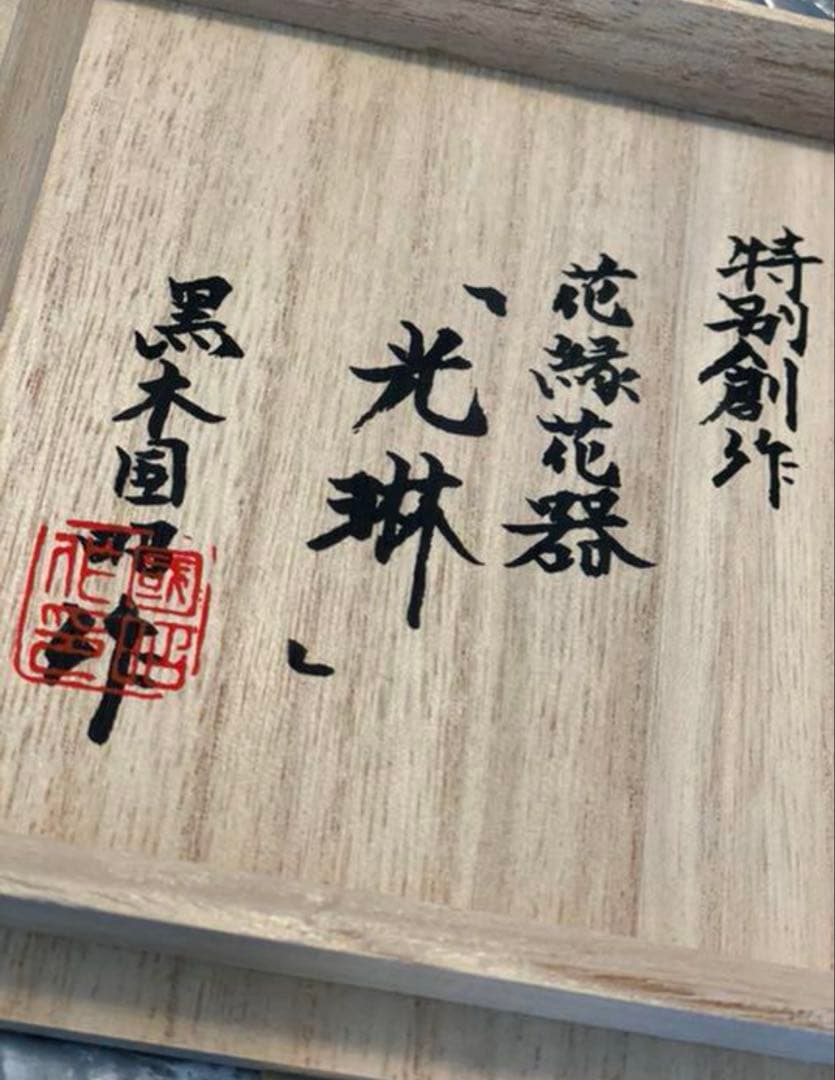 特別創作
花縁花器
「光琳」
黒木国昭作